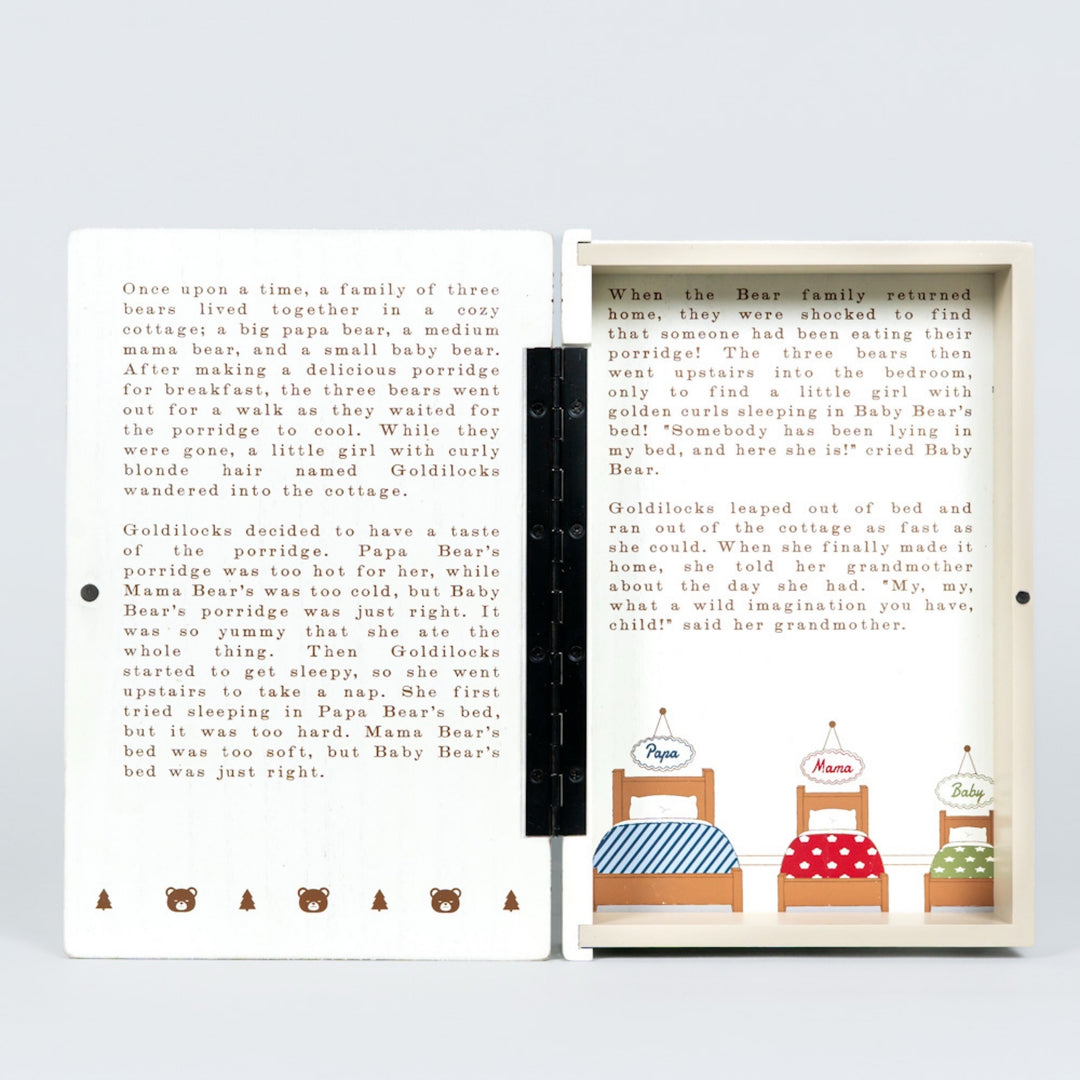 Once upon a time, a family of three
bears lived together in a cozy
cottage; a big papa bear, a medium
mama bear, and a small baby bear.
After making a delicious porridge
for breakfast, the three bears went
out for a walk as they waited for
the porridge to cool. While they
were gone, a little girl with curly
blonde hair named Goldilocks
wandered into the cottage.
Goldilocks decided to have a taste
of the porridge. Papa Bear's
porridge was too hot for her, while
Mama Bear's was too cold, but Baby
Bear's porridge was just right. It
was so yummy that she ate the
whole thing. Then Goldilocks
started to get sleepy, so she went
upstairs to take a nap. She first
tried sleeping in Papa Bear's bed,
but it was too hard. Mama Bear's
bed was too soft, but Baby Bear's
bed was just right.
When the Bear family returned
home, they were shocked to find
that someone had been eating their
porridge! The three bears then
went upstairs into the bedroom,
only to find a little girl with
golden curls sleeping in Baby Bear's
bed! "Somebody has been lying in
my bed, and here she is!" cried Baby
Bear.
Goldilocks leaped out of bed and
ran out of the cottage as fast as
she could. When she finally made it
home, she told her grandmother
about the day she had. "My, my,
what a wild imagination you have,
child!" said her grandmother.
Papa
Mama
Baby